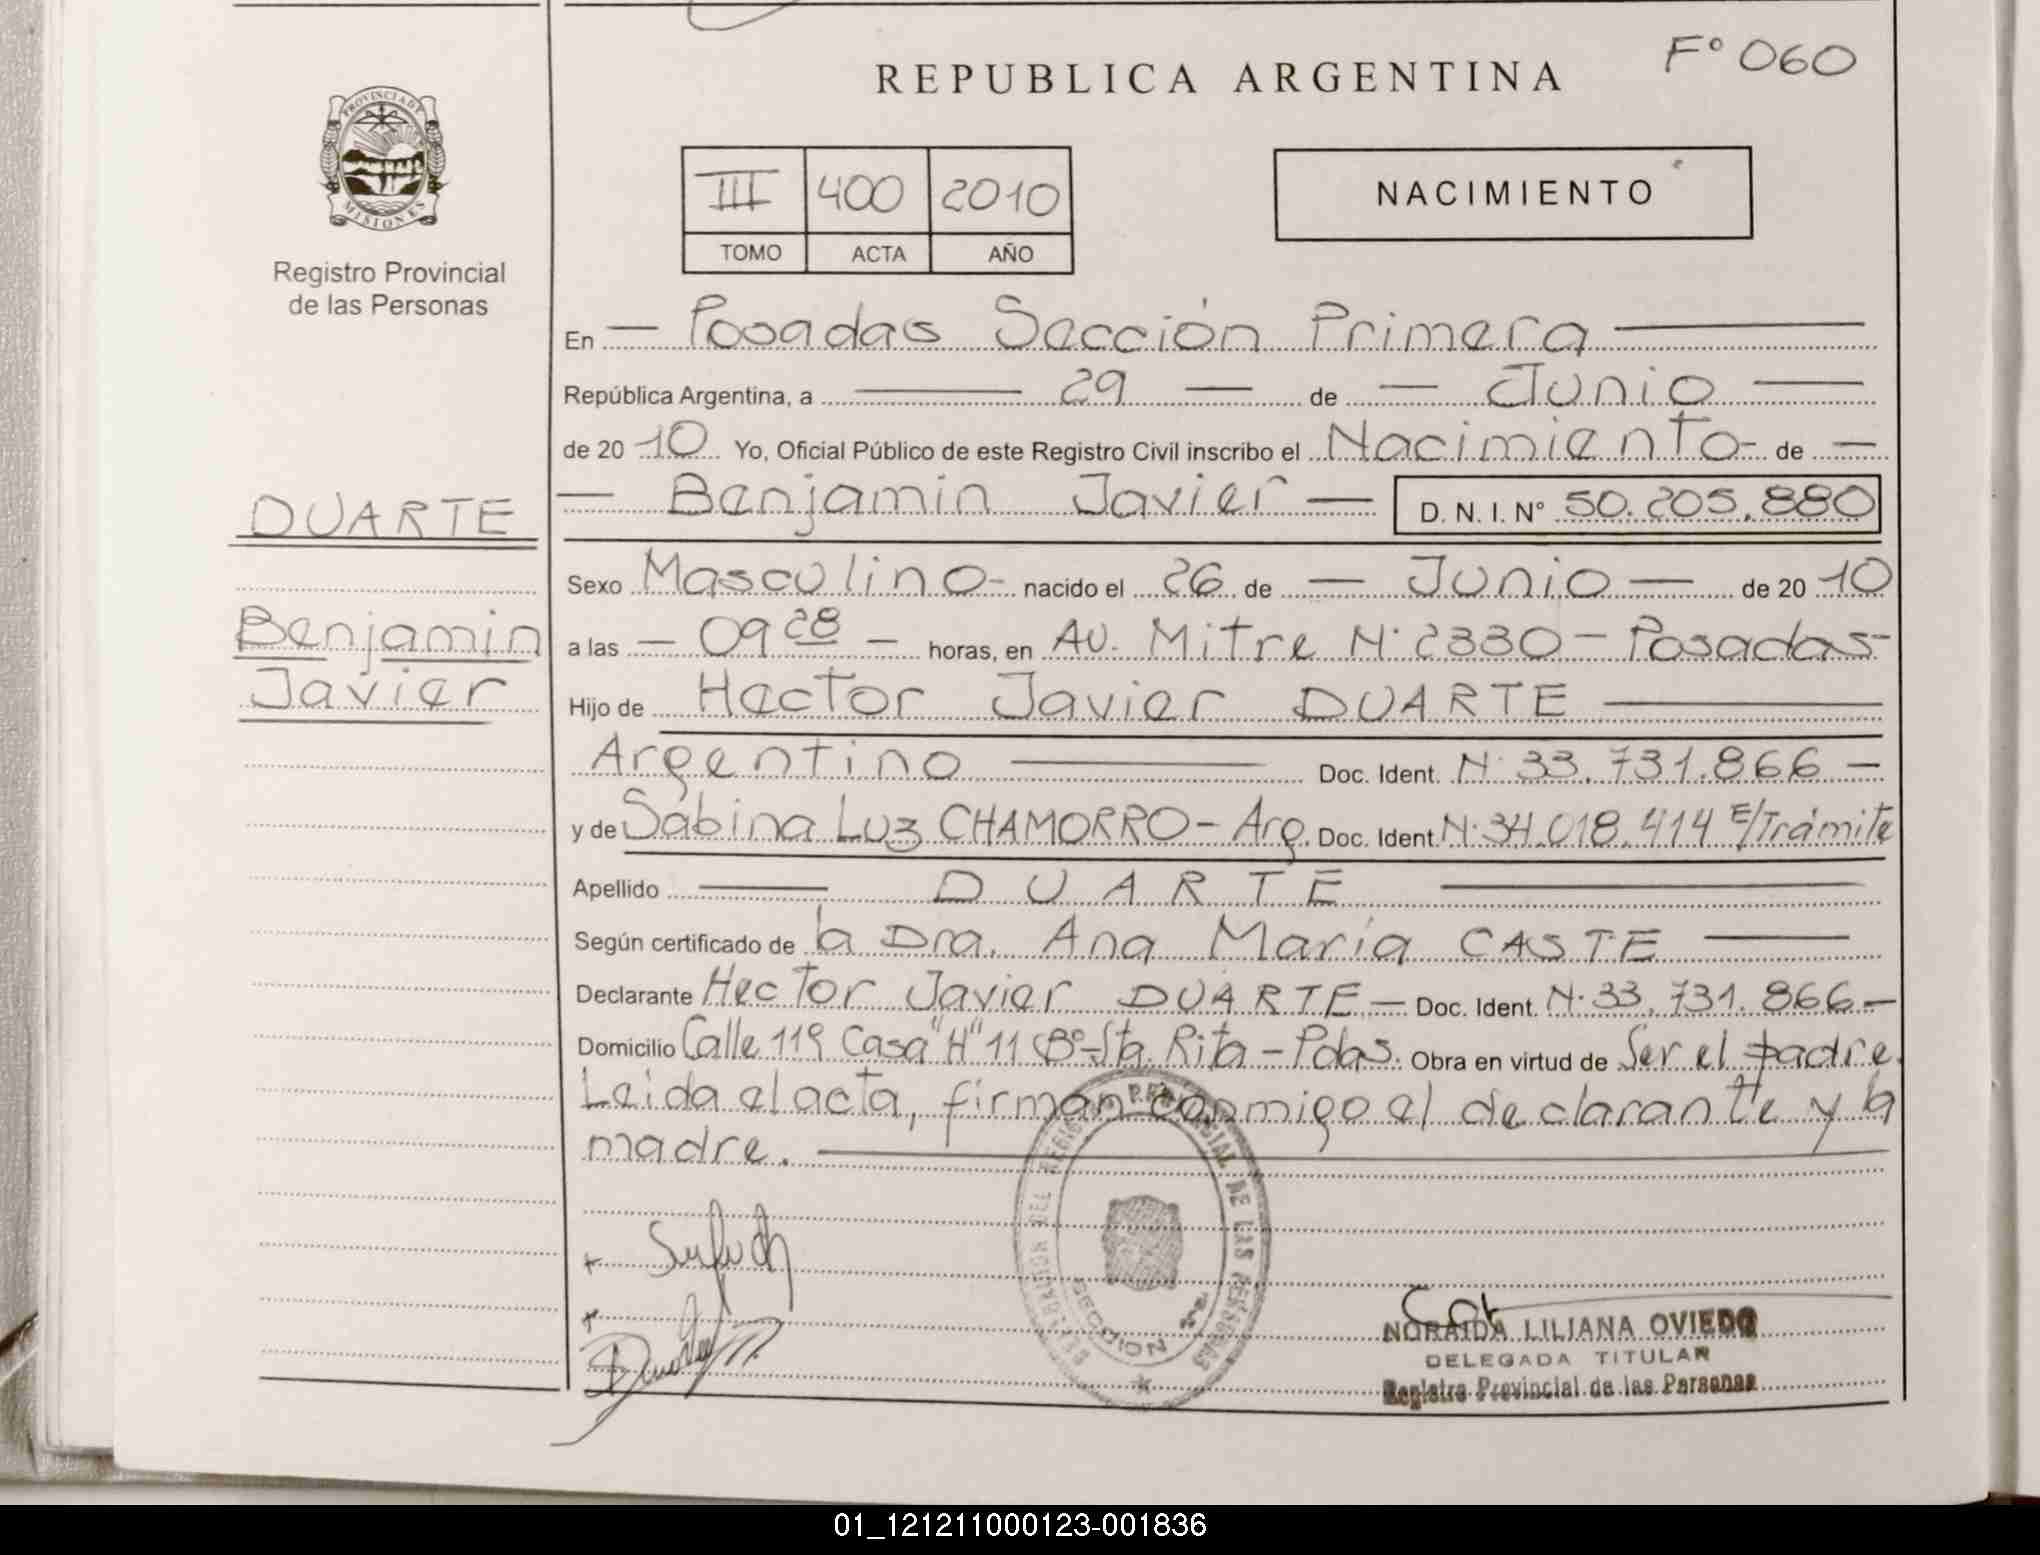 F° 060
REPUBLICA ARGENTINA
PROVINCIA DE
MISIONES
III 400 2010
TOMO ACTA AÑO
NACIMIENTO
Registro Provincial
de las Personas
En — Posadas Sección Primera —
República Argentina, a — 29 — de — Junio —
de 20 10 Yo, Oficial Público de este Registro Civil inscribo el Nacimiento - de —
— Benjamin Javier — D. N. I. N° 50.205.880
DUARTE
Benjamin
Javier
Sexo Masculino - nacido el 26 de — Junio — de 20 10
a las — 09 28 — horas, en Av. Mitre N° 2330 - Posadas -
Hijo de Hector Javier DUARTE —
Argentino — Doc. Ident. N° 33.731.866 —
y de Sabina Luz CHAMORRO - Arg. Doc. Ident. N° 34.018.414 E/Trámite
Apellido — DUARTE —
Según certificado de la Dra. Ana María CASTE —
Declarante Hector Javier DUARTE — Doc. Ident. N° 33.731.866 —
Domicilio Calle 119 Casa "H" 11 B°- Sta. Rita - Pdas. Obra en virtud de Ser el padre.
Leida el acta, firman conmigo el declarante y la
madre. —
DEL REGISTRO PROVINCIAL DE LAS PERSONAS
SECCION
NORAIDA LILIANA OVIEDO
DELEGADA TITULAR
Registro Provincial de las Personas
01_121211000123-001836